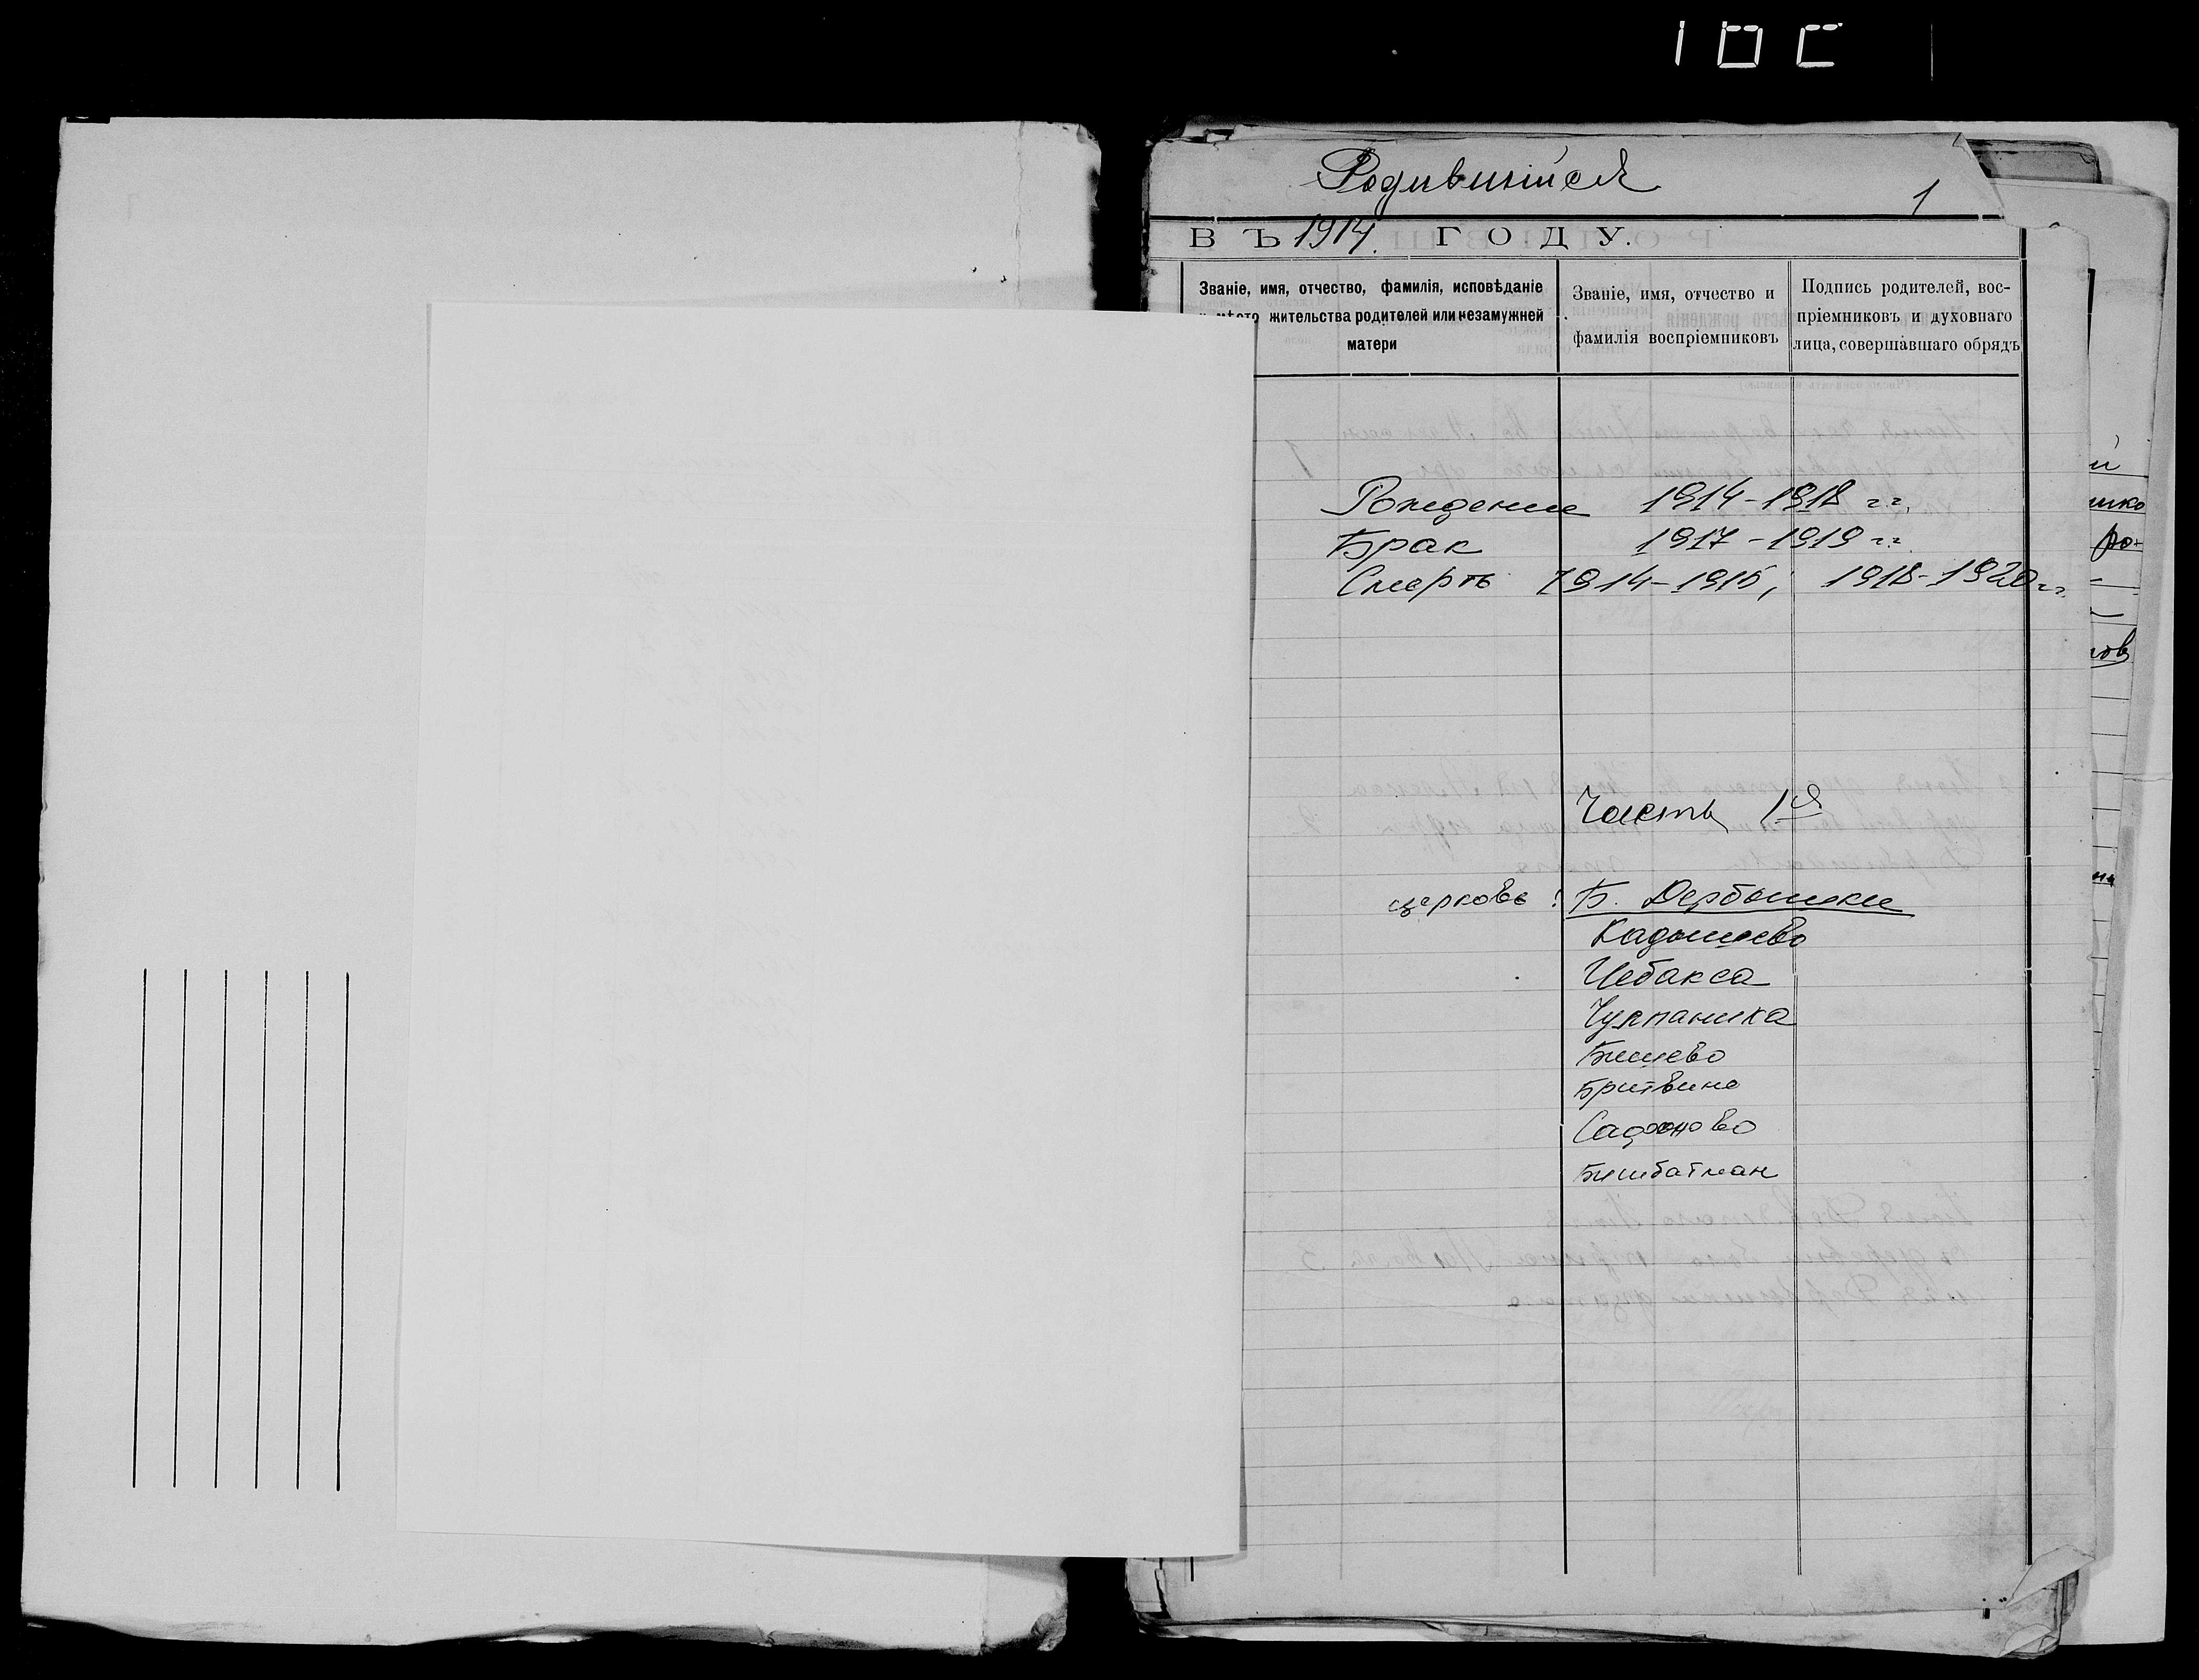 Родившийся
1
ВЪ 1914. ГОДУ.
Званіе, имя, отчество, фамилія, исповѣданіе
мѣсто жительства родителей или незамужней
матери
Званіе, имя, отчество и
фамилія воспріемниковъ
Подпись родителей, вос-
пріемниковъ и духовнаго
лица, совершавшаго обрядъ
Рождение 1914-1918 г.г.
Брак 1917-1919 г.г.
Смерть 1914-1915, 1918-1920 г.г.
Часть 1ая
церковь: Б. Дербышки
Кадышево
Чебакса
Чулпаниха
Бишево
Бритвино
Садоново
Бишбатман